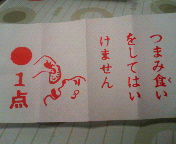 つまみ食い
をしてはい
けません
●1点